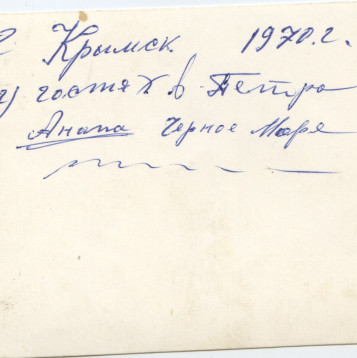 г. Крымск 1970.г.
в гостях в Петра
Анапа Черное Море